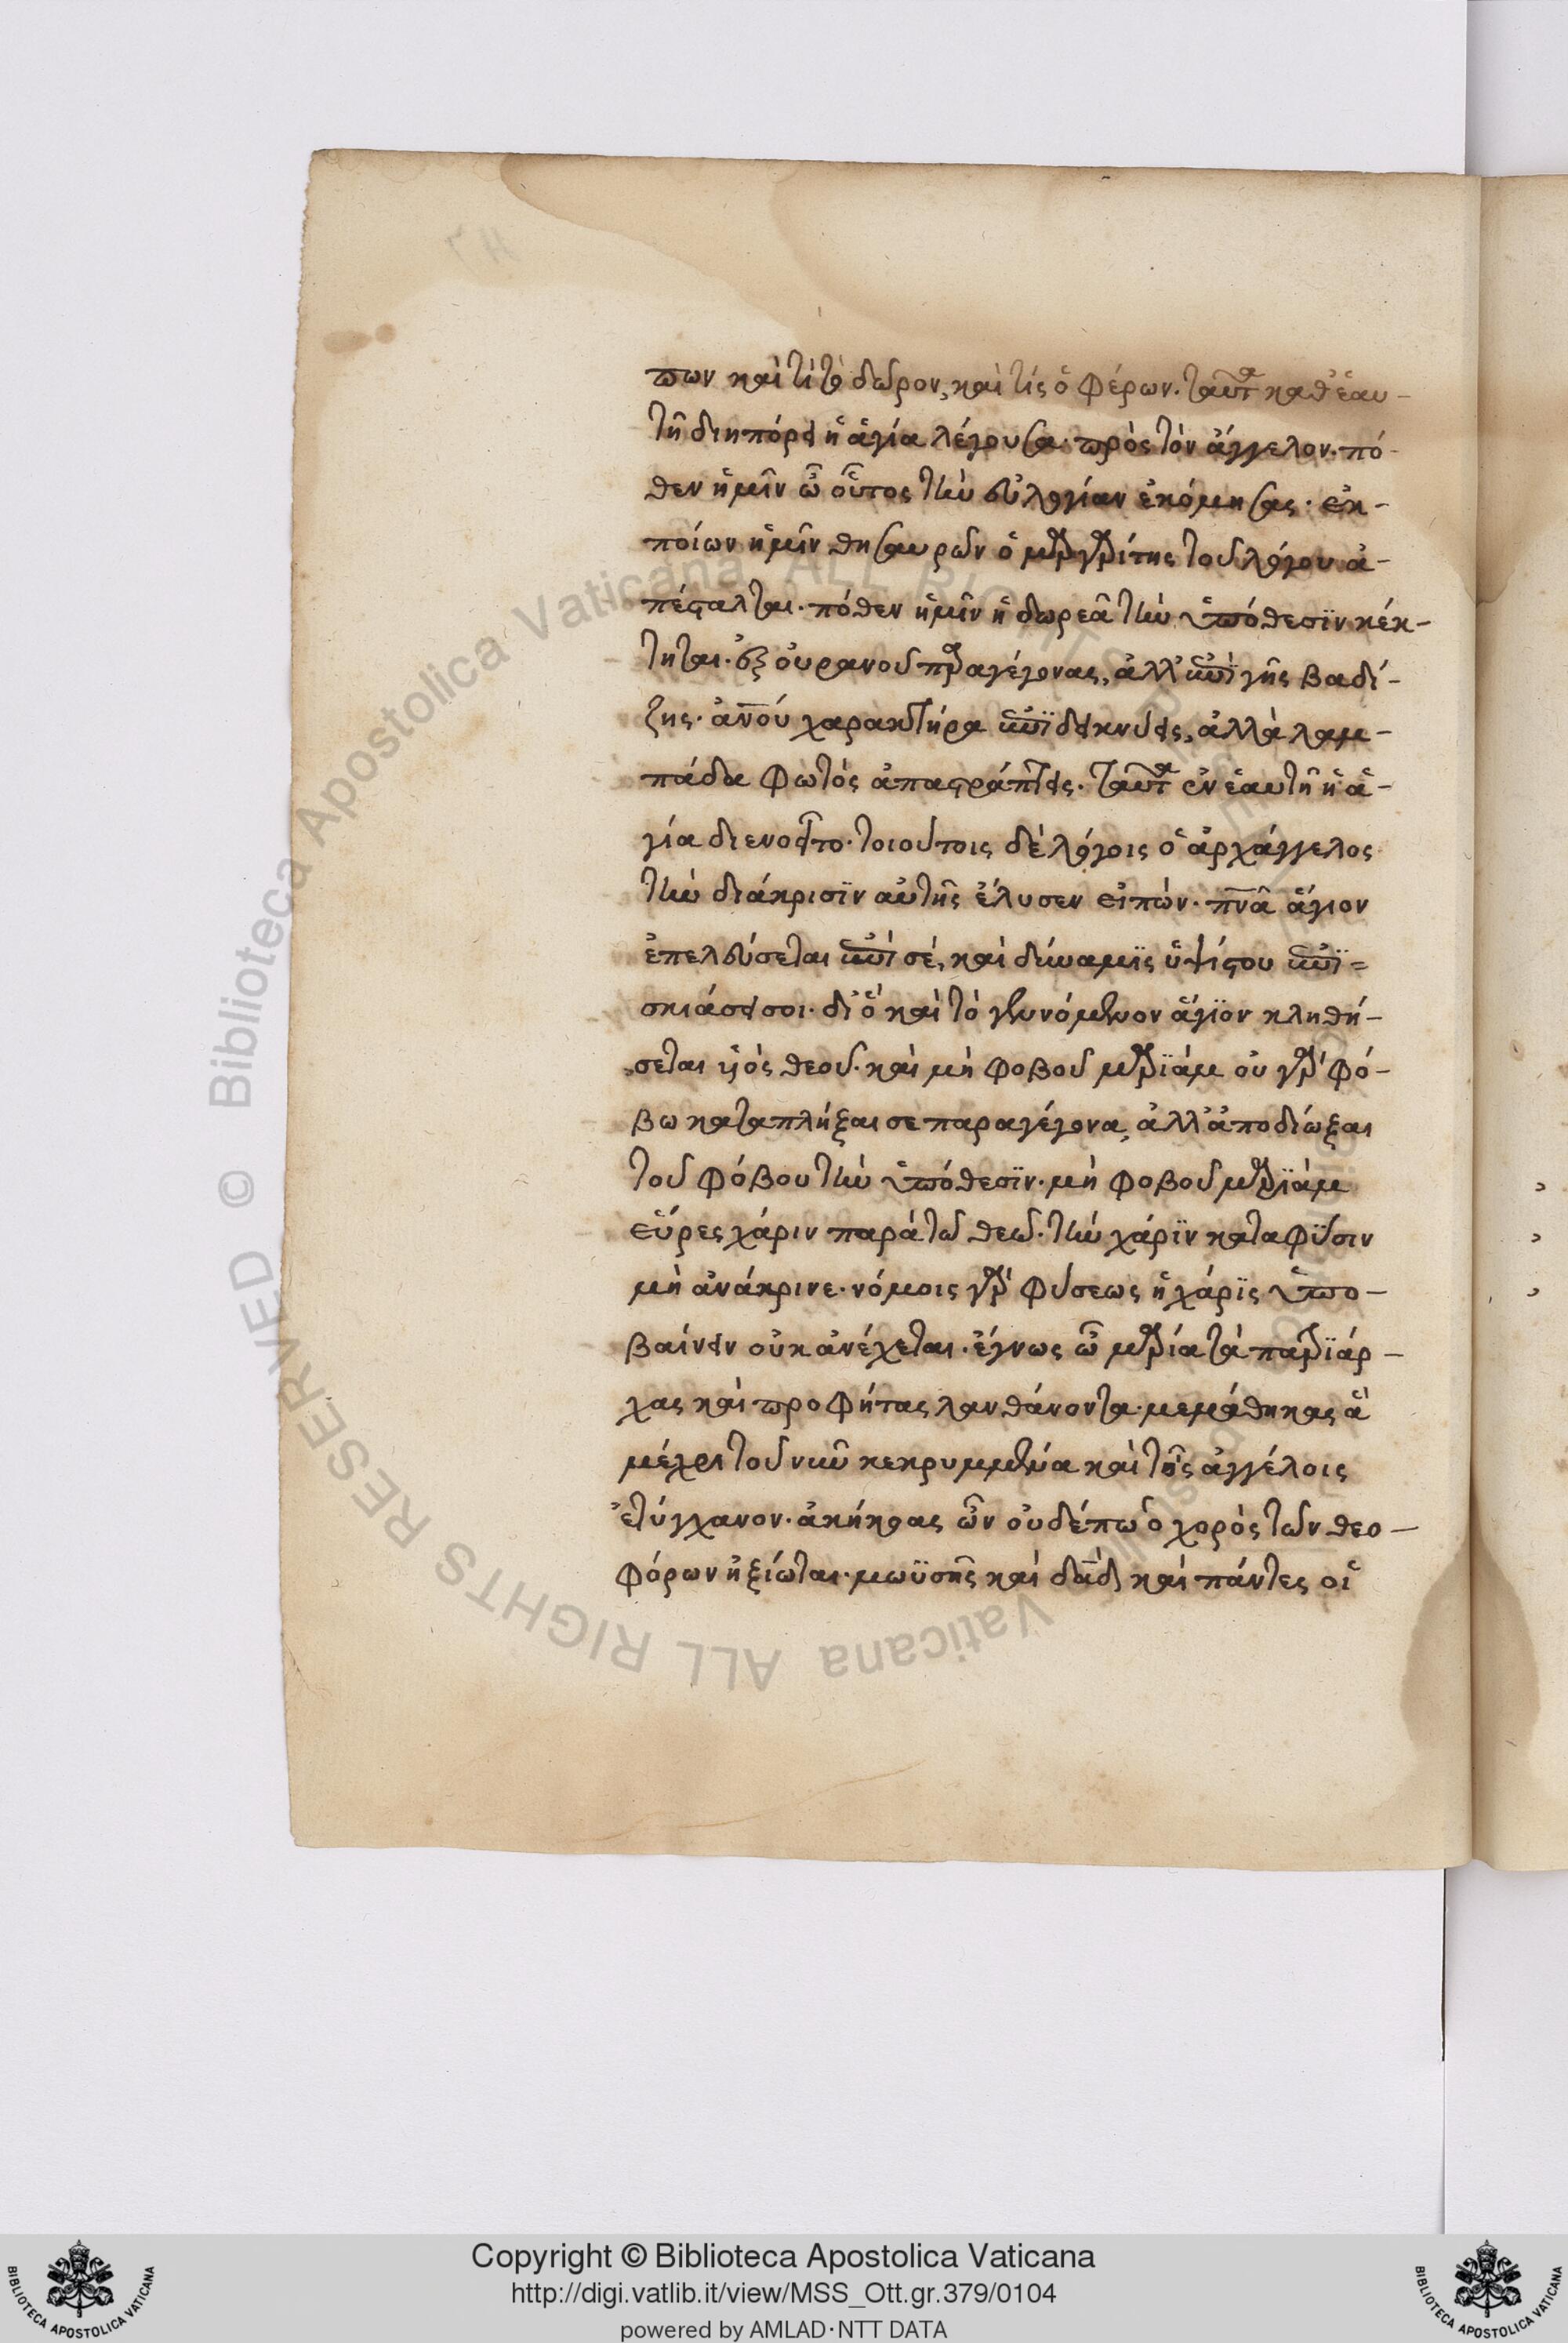 πων καὶ τί τὸ δῶρον, καὶ τίς ὁ φέρων. ταῦτα καθ' ἑαυ-
τὴ διηπόρει ἡ ἁγία λέγουσα πρὸς τὸν ἄγγελον. πό-
θεν ἡμῖν ὦ οὗτος τὴν εὐλογίαν ἐκόμησας. ἐκ-
ποίων ἡμῖν θησαυρῶν ὁ μαργαρίτης τοῦ λόγου ἀ-
πέσταλται. πόθεν ἡμῖν ἡ δωρεὰ τὴν ὑπόθεσϊν κέκ-
τηται. ἐξ οὐρανοῦ παραγέγονας, ἀλλ' ἐπὶ γῆς βαδί-
ζης. ἀνου χαρακτήρα ἐπϊδεικνύεις, ἀλλὰ λαμ-
πάδα φωτὸς ἀπαστράπτεις. ταῦτα ἐν ἑαυτῆ ἡ ἁ-
γία διενοεῖτο. τοιούτοις δὲ λόγοις ὁ ἀρχάγγελος
τὴν διάκρισϊν αὐτῆς ἔλυσεν εἰπών. πνα ἅγιον
ἐπελεύσεται ἐπὶ σέ, καὶ δύναμϊς ὑψίστου ἐπϊ-
σκιάσει σοι. δι' ὃ καὶ τὸ γεννόμενον ἅγϊον κληθή-
σεται υἱὸς θεοῦ. καὶ μὴ φοβοῦ μαρϊάμ οὐ γὰρ φό-
βω καταπλήξαι σε παραγέγονα, ἀλλ' ἀποδιώξαι
τοῦ φόβου τὴν ὑπόθεσϊν. μὴ φοβοῦ μαρϊάμ
εὗρες χάριν παρὰ τῶ θεῶ. τὴν χάρϊν κατα φύσιν
μὴ ἀνάκρινε. νόμοις γὰρ φύσεως ἡ χάρϊς ὑπο-
βαίνειν οὐκ ἀνέχεται. ἔγνως ὦ μαρία τὰ πατρϊάρ-
χας καὶ προφήτας λανθάνοντα. μεμάθηκας ἃ
μέχρι τοῦ νῦν κεκρυμμένα καὶ τοῖς ἀγγέλοις
ἐτύγχανον. ἀκήκοας ὧν οὐδέπω ὁ χορὸς τῶν θεο-
φόρων ἠξίωται. μωϋσῆς καὶ δαδ καὶ πάντες οἱ
Copyright © Biblioteca Apostolica Vaticana
http://digi.vatlib.it/view/MSS_Ott.gr.379/0104
powered by AMLAD·NTT DATA